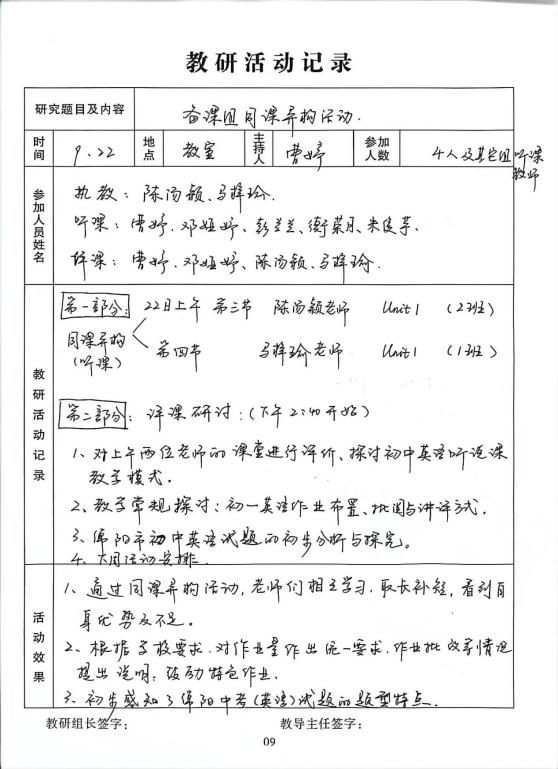 教研活动记录
研究题目及内容 备课组同课异构活动.
时间 9.22 地点 教室 主持人 曹婷 参加人数 4人及其它组听课教师
参加人员姓名
执教：陈尚颖、马梓玲.
听课：曹婷、邓婭婷、彭兰兰、衡荣月、朱俊
评课：曹婷、邓婭婷、陈尚颖、马梓玲.
教研活动记录
第一部分: 22日上午 第三节 陈尚颖老师 Unit 1 (2班)
同课异构
(听课) 第四节 马梓玲老师 Unit 1 (1班)
第二部分: 评课研讨：(下午2:40开始)
1、对上午两位老师的课堂进行评价、探讨初中英语听说课
教学模式.
2、教学常规探讨：初一英语作业布置、批阅与讲评方式.
3、绵阳市初中英语试题的初步分析与探究。
4、大周活动安排.
活动效果
1、通过同课异构活动,老师们相互学习.取长补短,看到自
身优势及不足.
2、根据学校要求.对作业量作出统一要求.作业批改等情况
提出说明；鼓励特色作业.
3、初步感知了绵阳中考(英语)试题的题型特点.
教研组长签字： 教导主任签字：
09